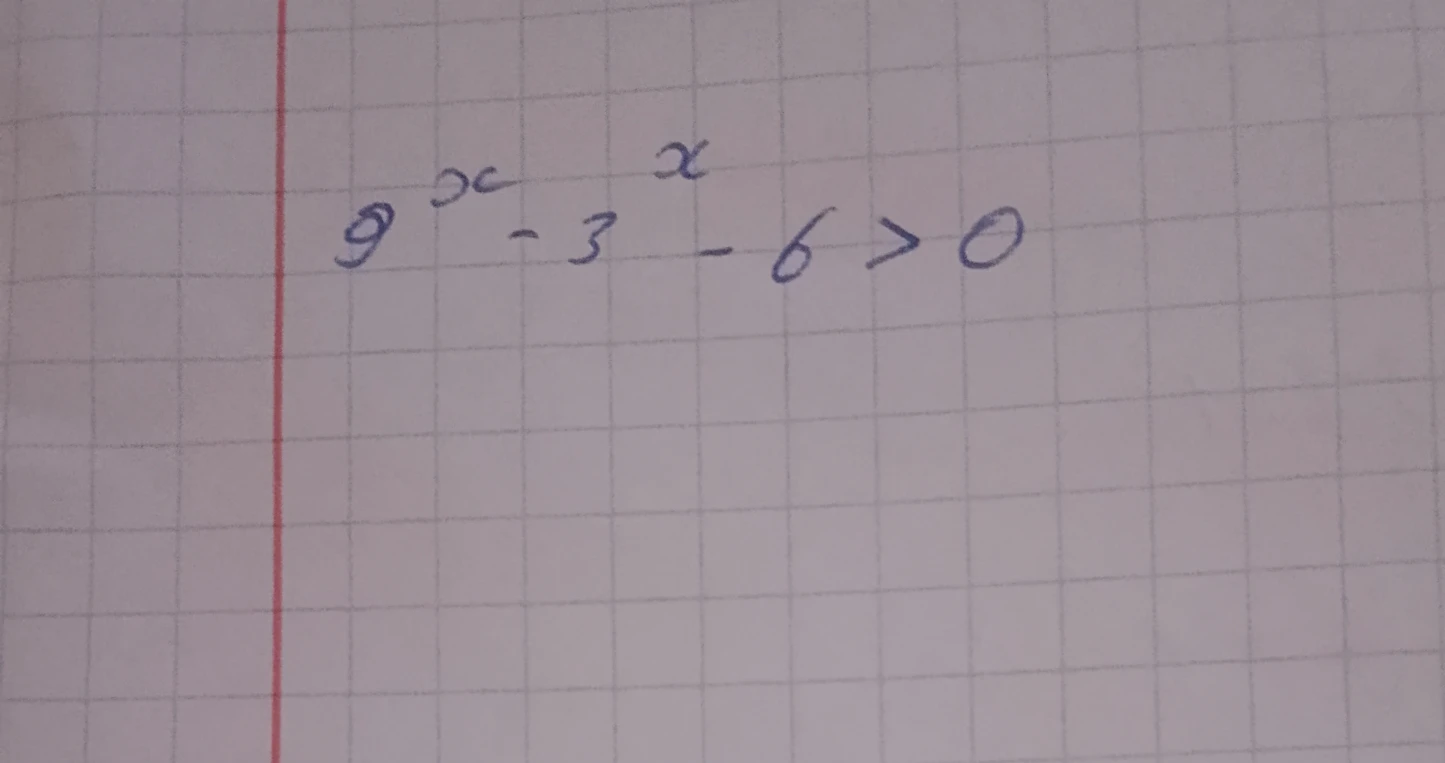 9^x - 3^x - 6 > 0